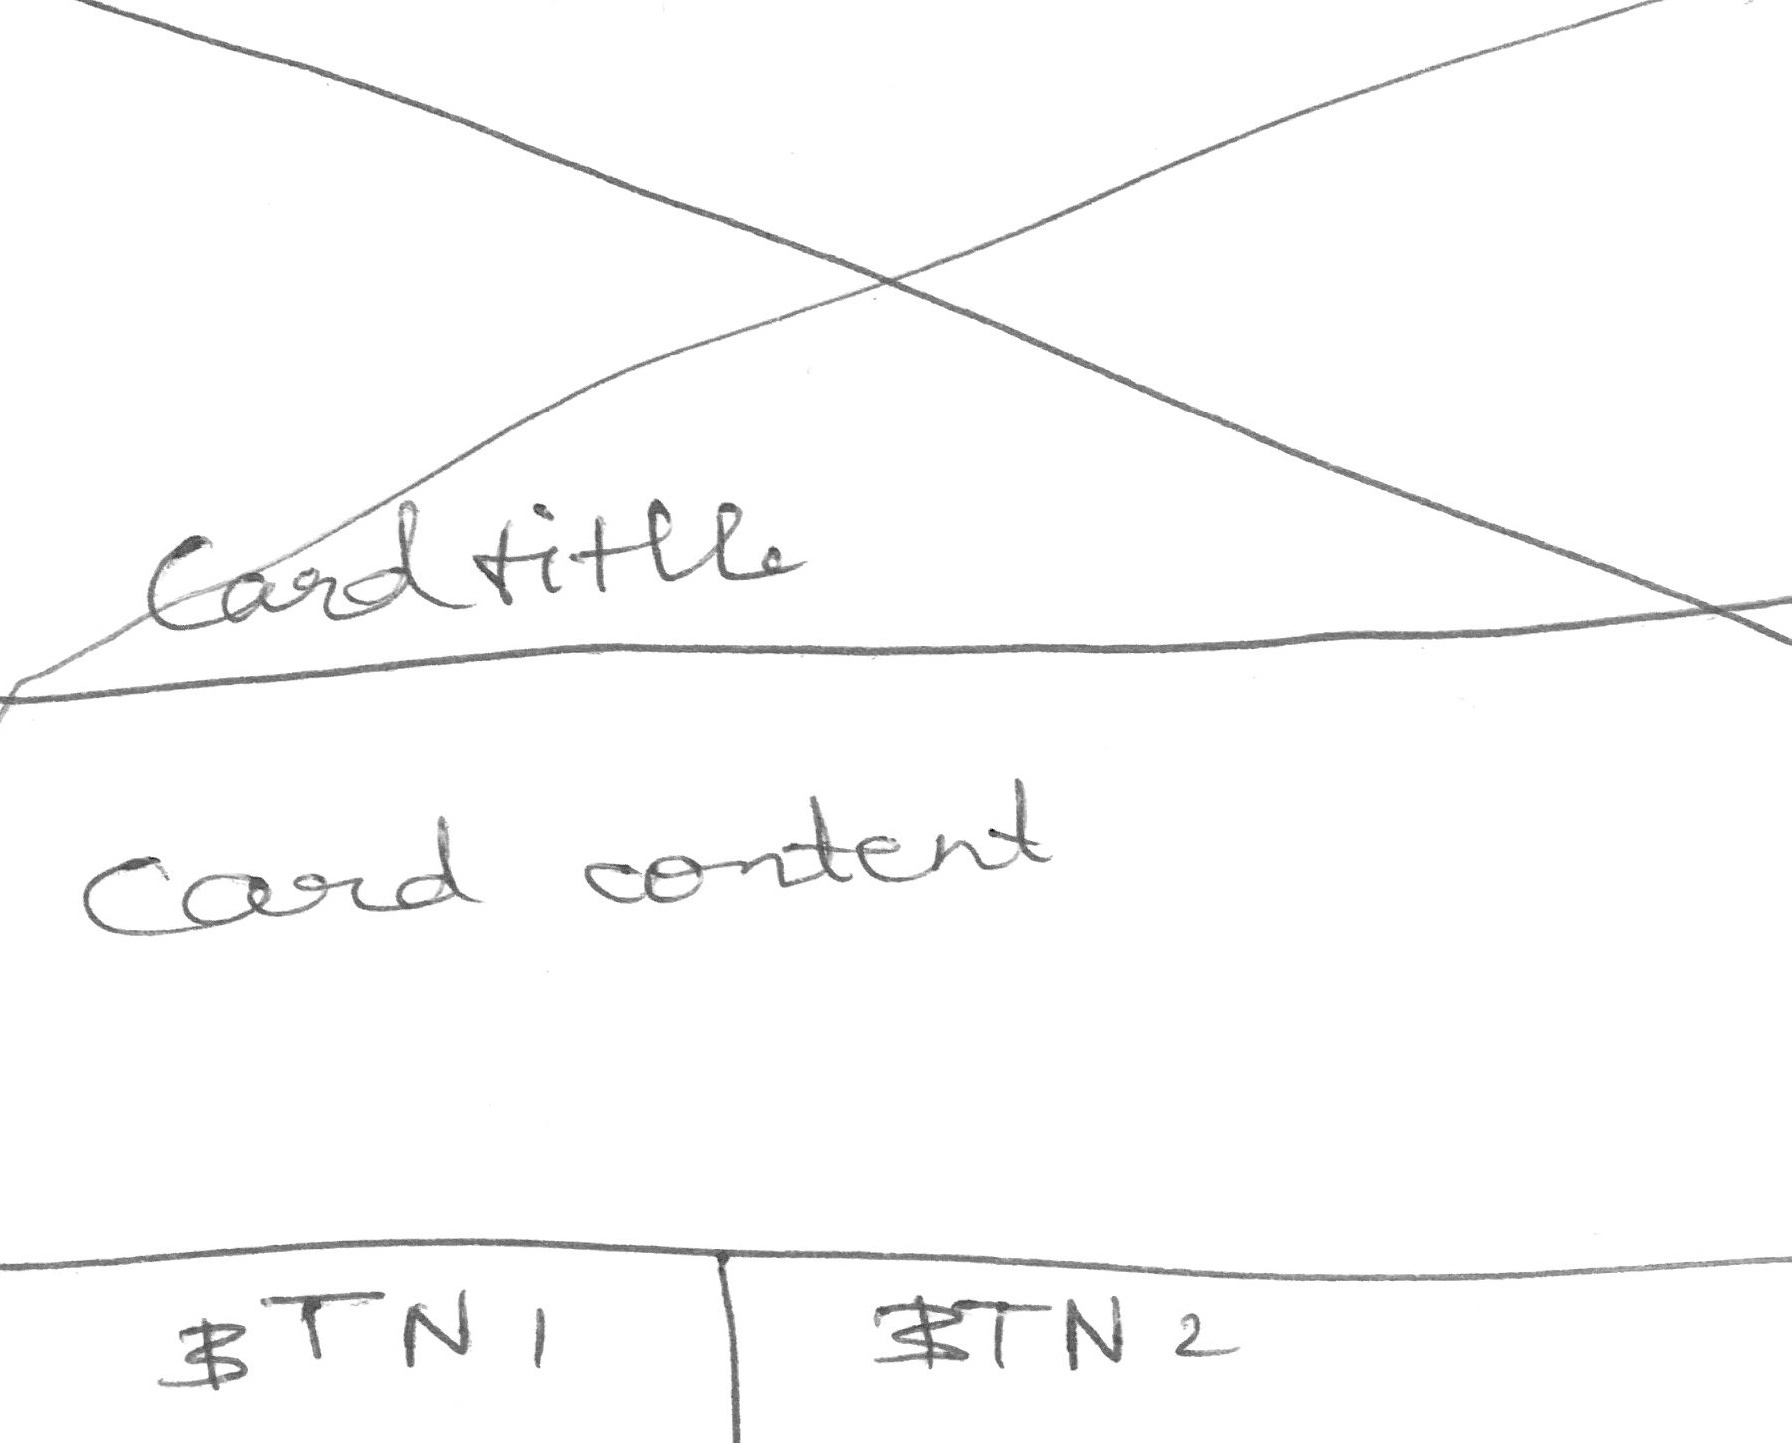 Card titlle
Card content
BTN 1
BTN 2